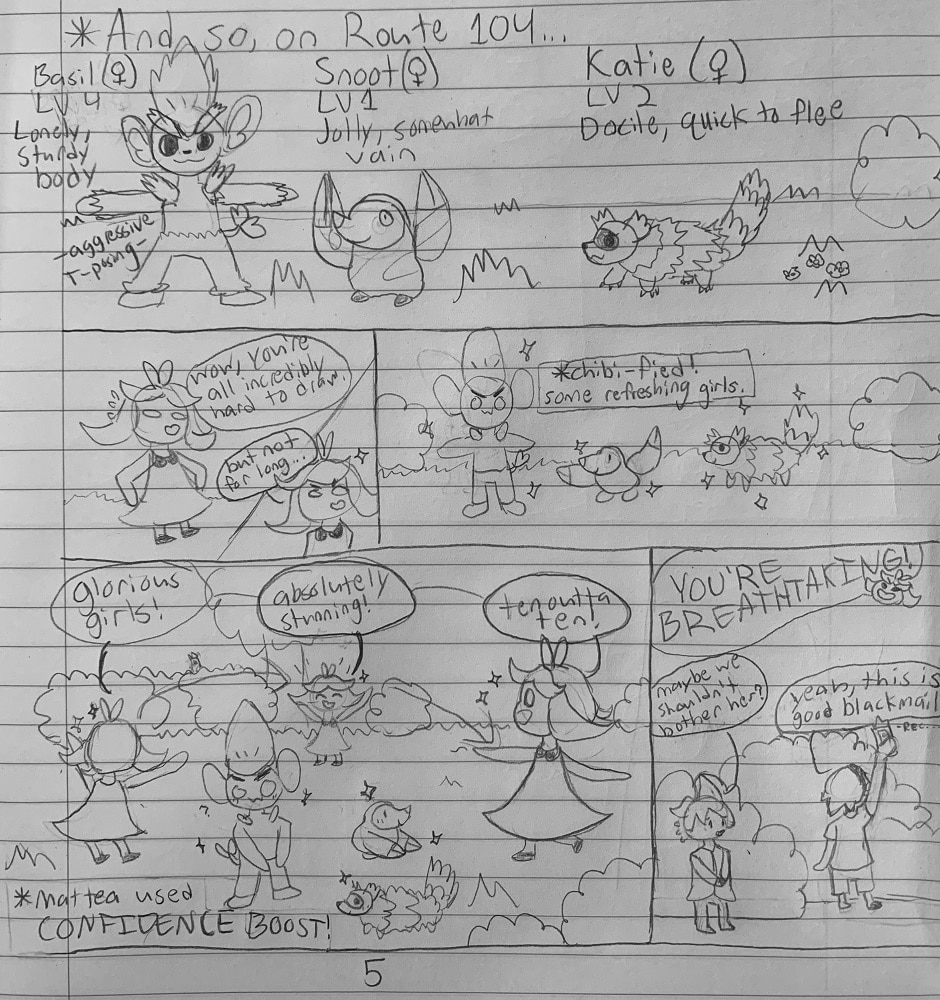 *And so, on Route 104...
Basil (♀)
LV 4
Lonely,
sturdy
body
-aggressive
T-posing-
Snoot (♀)
LV 1
Jolly, somewhat
vain
Katie (♀)
LV 2
Docile, quick to flee
wow, you're
all incredibly
hard to draw.
but not
for long...
*chibi-fied!
some refreshing girls.
glorious
girls!
absolutely
stunning!
ten outta
ten!
*Mattea used
CONFIDENCE BOOST!
YOU'RE
BREATHTAKING!
maybe we
shouldn't
bother her?
yeah, this is
good blackmail
-REC-
5